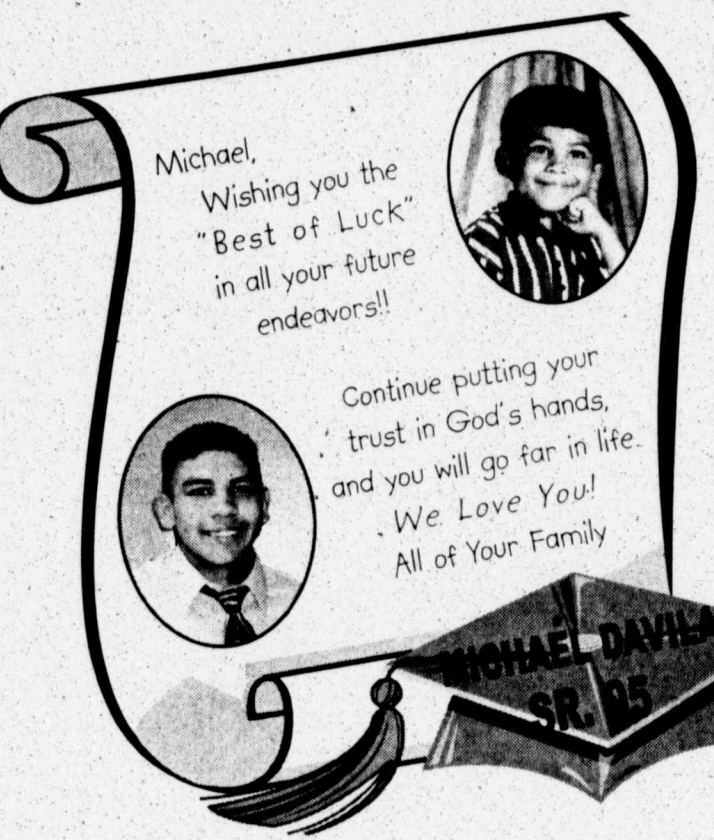 Michael,
Wishing you the
"Best of Luck"
in all your future
endeavors!!
Continue putting your
trust in God's hands,
and you will go far in life.
We Love You!
All of Your Family
MICHAEL DAVILA
SR. 95